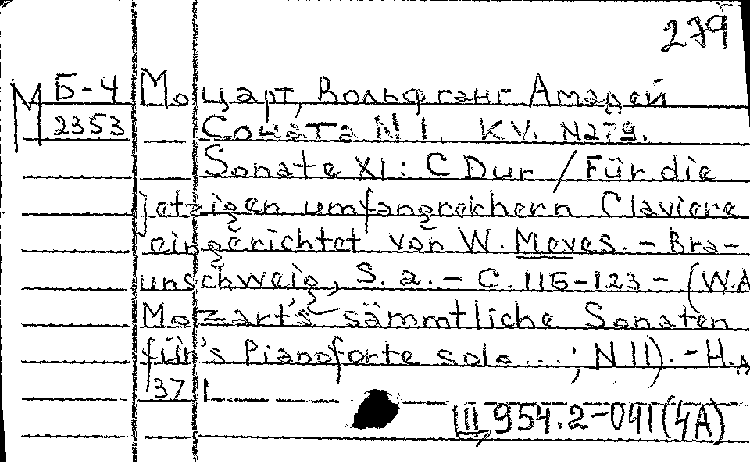 279
Б-4 Моцарт, Вольфганг Амадей
М 2353 Соната N 1. KV. N279.
Sonate XI: C Dur / Für die
jetzigen umfangreichern Claviere
eingerichtet von W. Meves. - Bra-
unschweig, S. a. - С. 115-123 - (W.A
Mozart's sämmtliche Sonaten
für's Pianoforte solo ... ; N 11). - Н.д
37
III 954.2-041(4А)